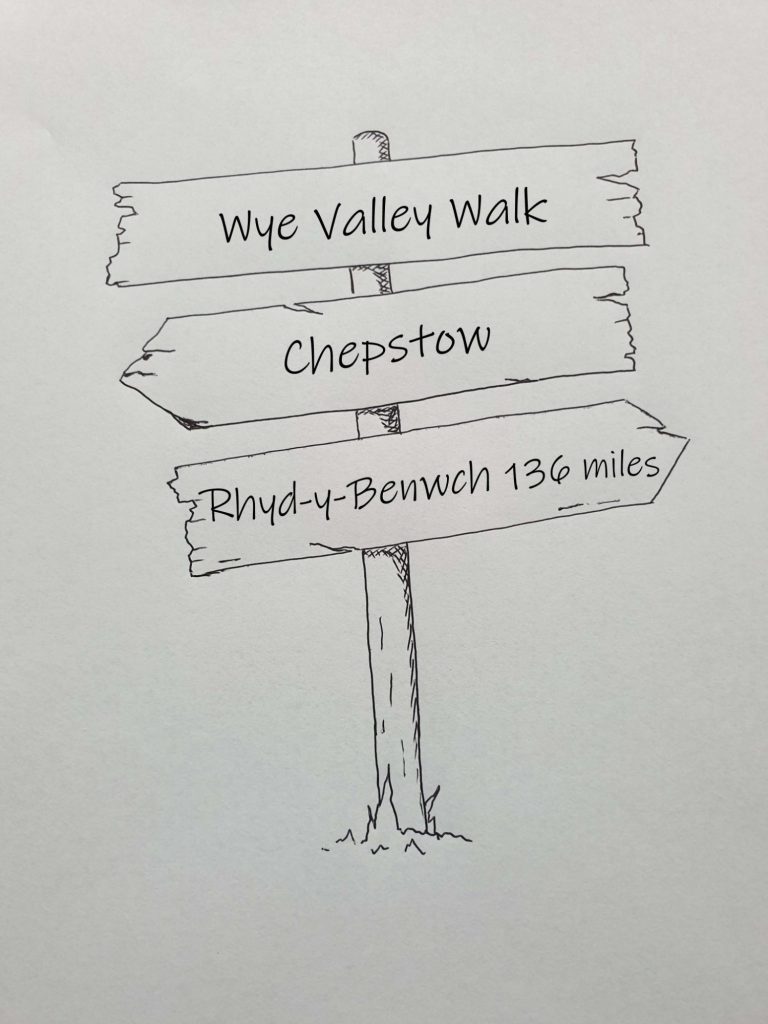 Wye Valley Walk
Chepstow
Rhyd-y-Benwch 136 miles